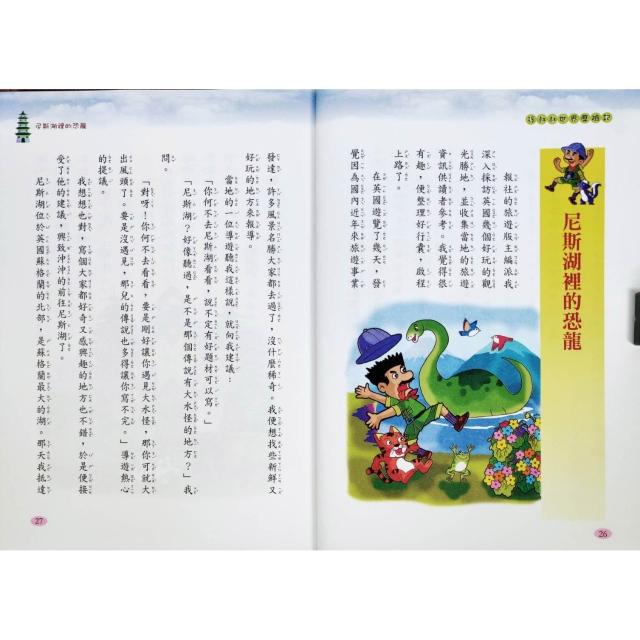 世界歷險記
尼斯湖裡的恐龍
報社的旅遊版主編派我
深入採訪英國幾個好玩的觀
光勝地,並收集當地的旅遊
資訊供讀者參考。我覺得很
有趣,便整理好行囊,啟程
上路了。
在英國遊覽了幾天,發
覺因為國內近年來旅遊事業
26
尼斯湖裡的恐龍
發達,許多風景名勝大家都去過了,沒什麼稀奇。我便想找些新鮮又
好玩的地方來報導。
當地的一位導遊聽我這樣說,就向我建議:
「你何不去尼斯湖看看,說不定有好題材可以寫。」
「尼斯湖?好像聽過,是不是那個傳說有大水怪的地方?」我
問。
「對呀!你何不去看看,要是剛好讓你遇見大水怪,那你可就大
出風頭了。要是沒遇見,那兒的傳說也多得讓你寫不完。」導遊熱心
的提議。
我想想也對,寫個大家都好奇又感興趣的地方也不錯,於是便接
受了他的建議,興致沖沖的前往尼斯湖了。
尼斯湖位於英國蘇格蘭的北部,是蘇格蘭最大的湖。那天我抵達
27